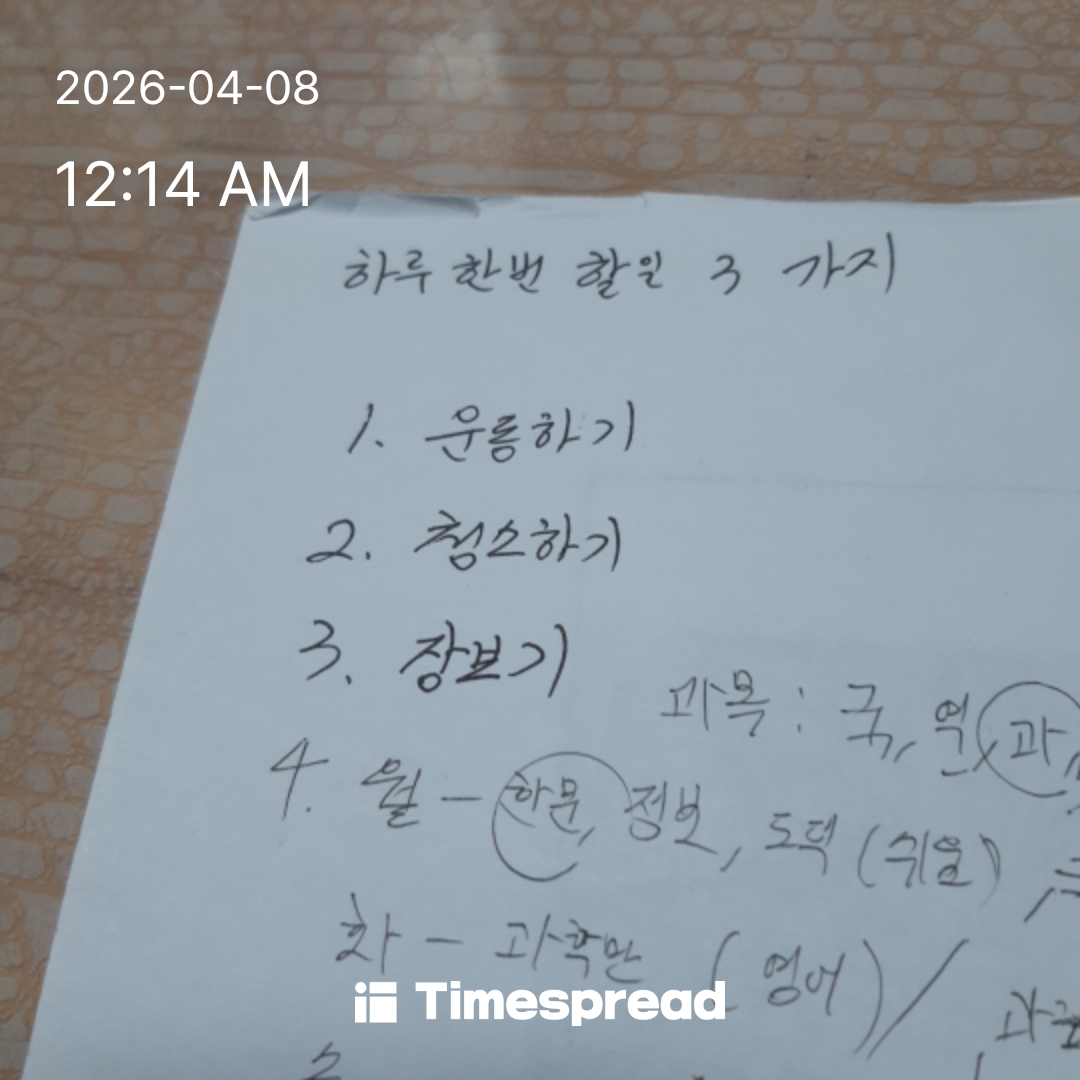 2026-04-08
12:14 AM
하루 한번 할일 3 가지
1. 운동하기
2. 청소하기
3. 장보기
과목 : 국, 역, 과,
4. 월 - 한문, 정보, 도덕 (쉬움)
화 - 과학만 (영어) /
Timespread